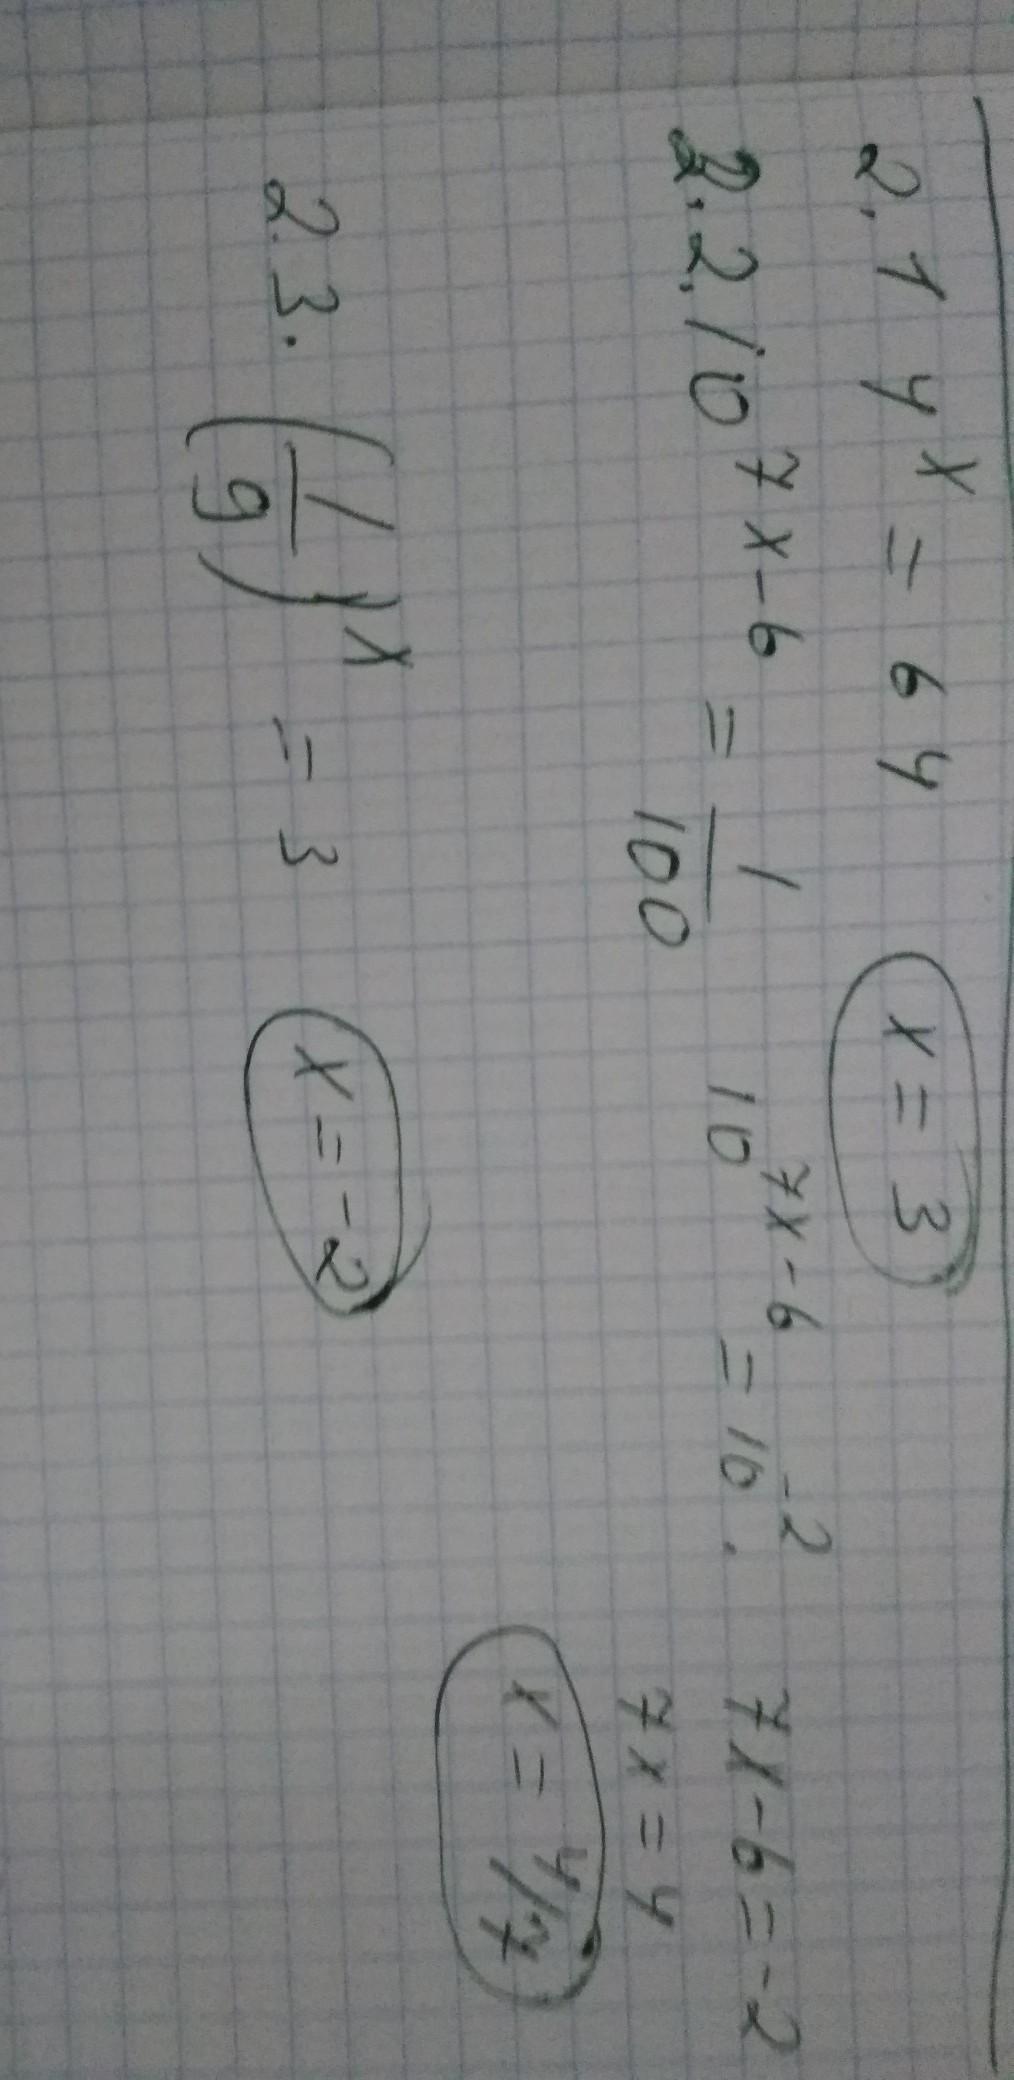 2.1 4^x = 64 x = 3
2.2. 10^7x-6 = 1/100 10^7x-6 = 10^-2. 7x-6=-2
7x=4
x = 4/7
2.3. (1/9)^x = 3 x=-2